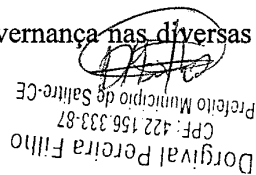 vernança nas diversas
Dorgival Pereira Filho
CPF: 422.156.333-87
Prefeito do Município de Salitre-CE